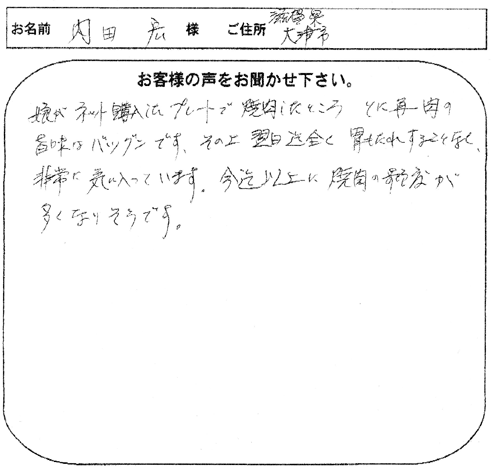 お名前 内田 広 様 ご住所 滋賀県
大津市
お客様の声をお聞かせ下さい。
娘がネット購入したプレートで焼肉したところ とに角肉の
旨味はバツグンです、その上翌日迄全く胃もたれすることなく、
非常に気に入っています。今迄以上に焼肉の頻度が
多くなりそうです。